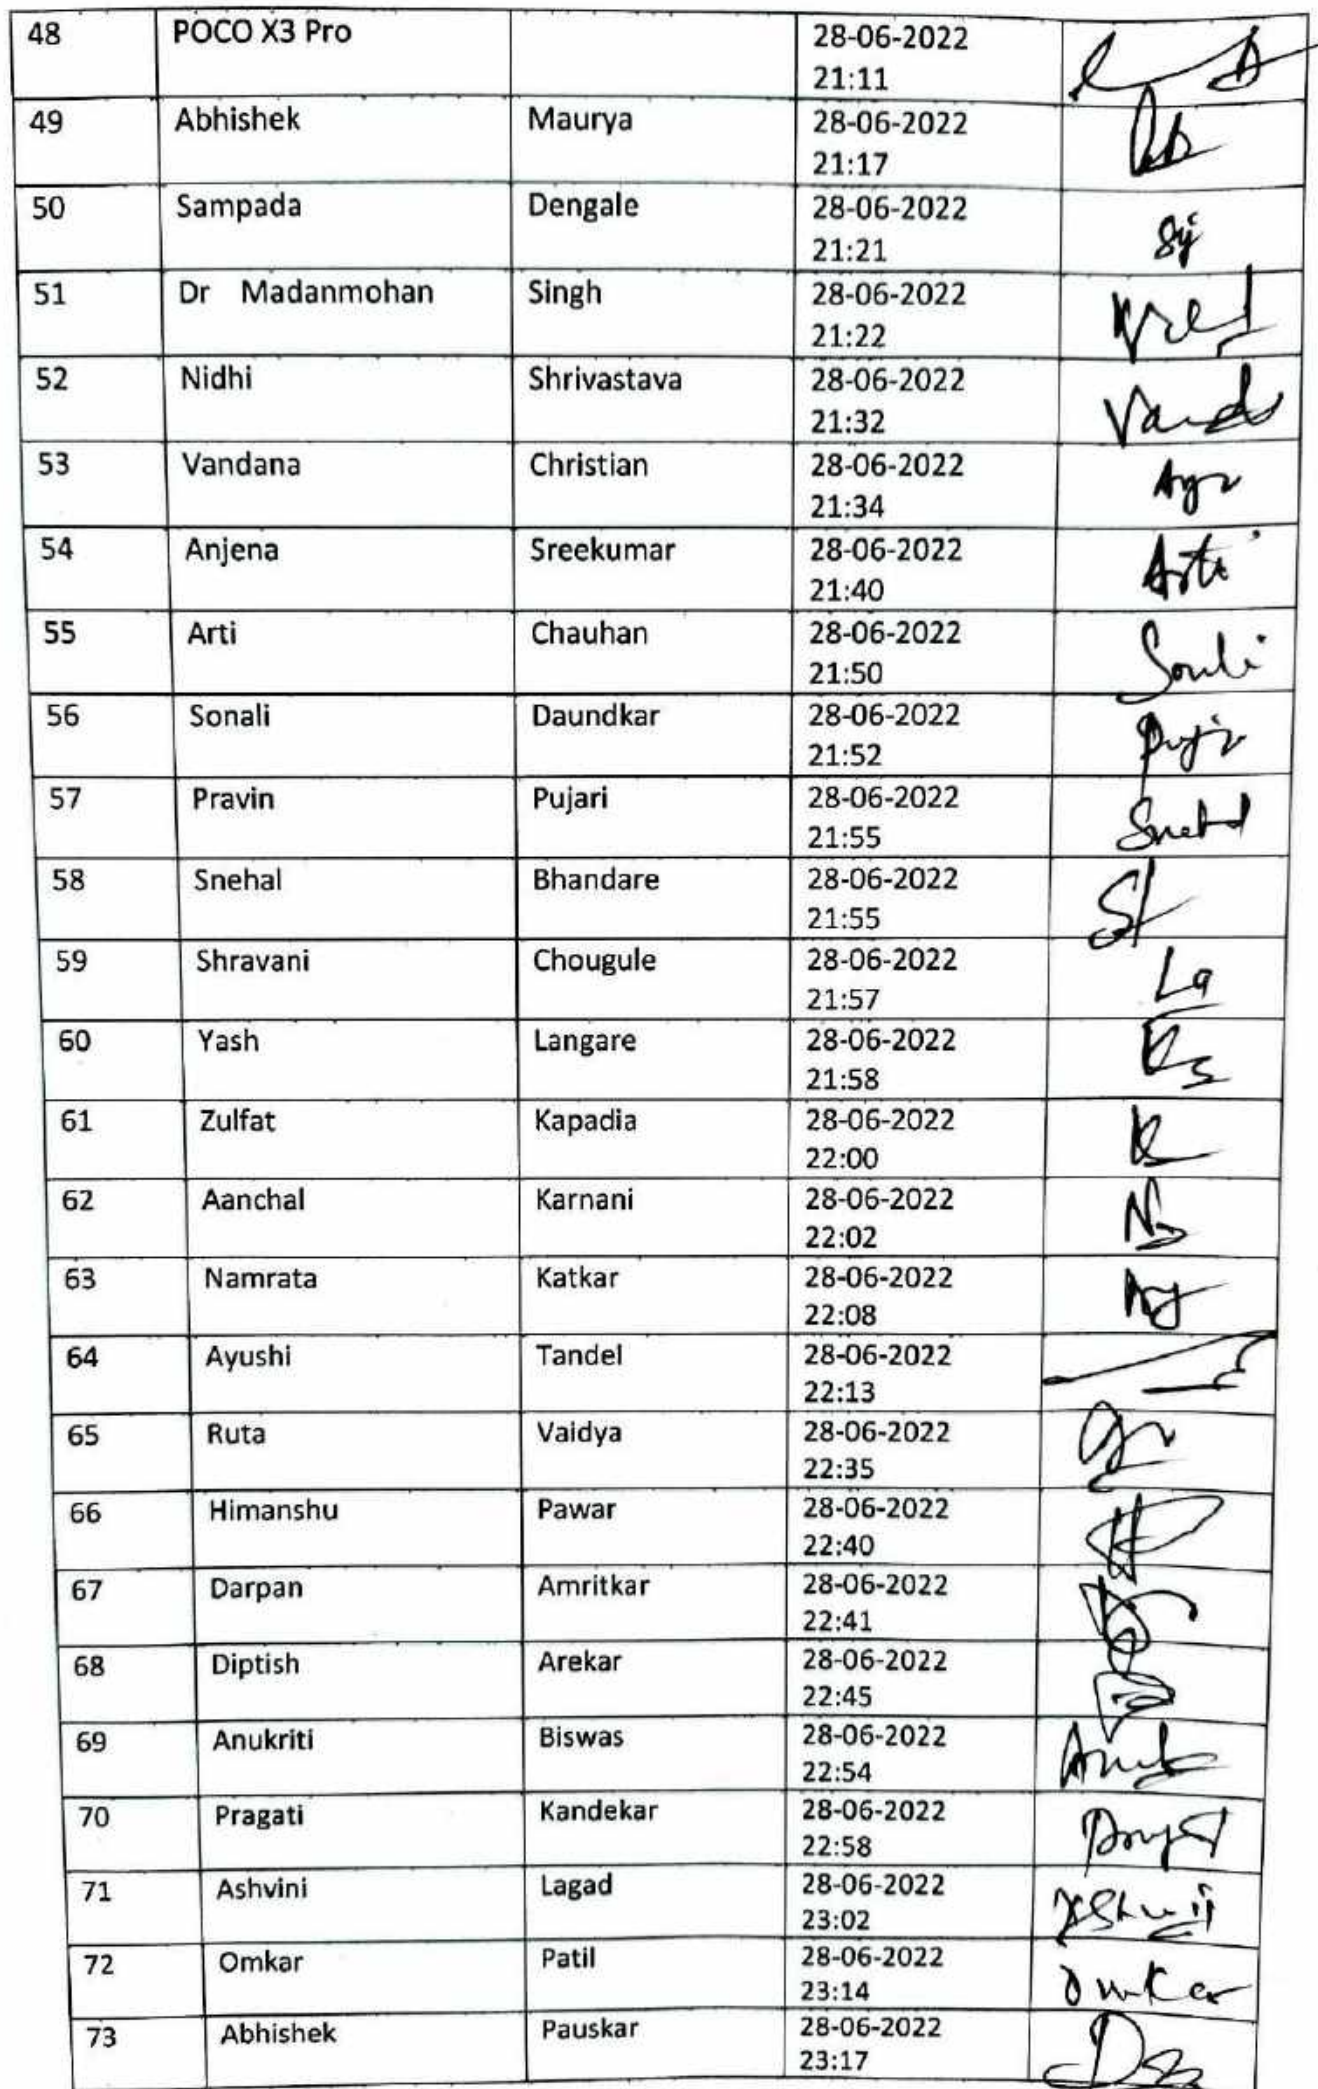 48 POCO X3 Pro 28-06-2022
21:11
49 Abhishek Maurya 28-06-2022
21:17
50 Sampada Dengale 28-06-2022
21:21
51 Dr Madanmohan Singh 28-06-2022
21:22
52 Nidhi Shrivastava 28-06-2022
21:32
53 Vandana Christian 28-06-2022
21:34
54 Anjena Sreekumar 28-06-2022
21:40 Arti
55 Arti Chauhan 28-06-2022
21:50
56 Sonali Daundkar 28-06-2022
21:52
57 Pravin Pujari 28-06-2022
21:55
58 Snehal Bhandare 28-06-2022
21:55
59 Shravani Chougule 28-06-2022
21:57 La
60 Yash Langare 28-06-2022
21:58
61 Zulfat Kapadia 28-06-2022
22:00
62 Aanchal Karnani 28-06-2022
22:02
63 Namrata Katkar 28-06-2022
22:08
64 Ayushi Tandel 28-06-2022
22:13
65 Ruta Vaidya 28-06-2022
22:35
66 Himanshu Pawar 28-06-2022
22:40
67 Darpan Amritkar 28-06-2022
22:41
68 Diptish Arekar 28-06-2022
22:45
69 Anukriti Biswas 28-06-2022
22:54
70 Pragati Kandekar 28-06-2022
22:58
71 Ashvini Lagad 28-06-2022
23:02
72 Omkar Patil 28-06-2022
23:14 Omkar
73 Abhishek Pauskar 28-06-2022
23:17